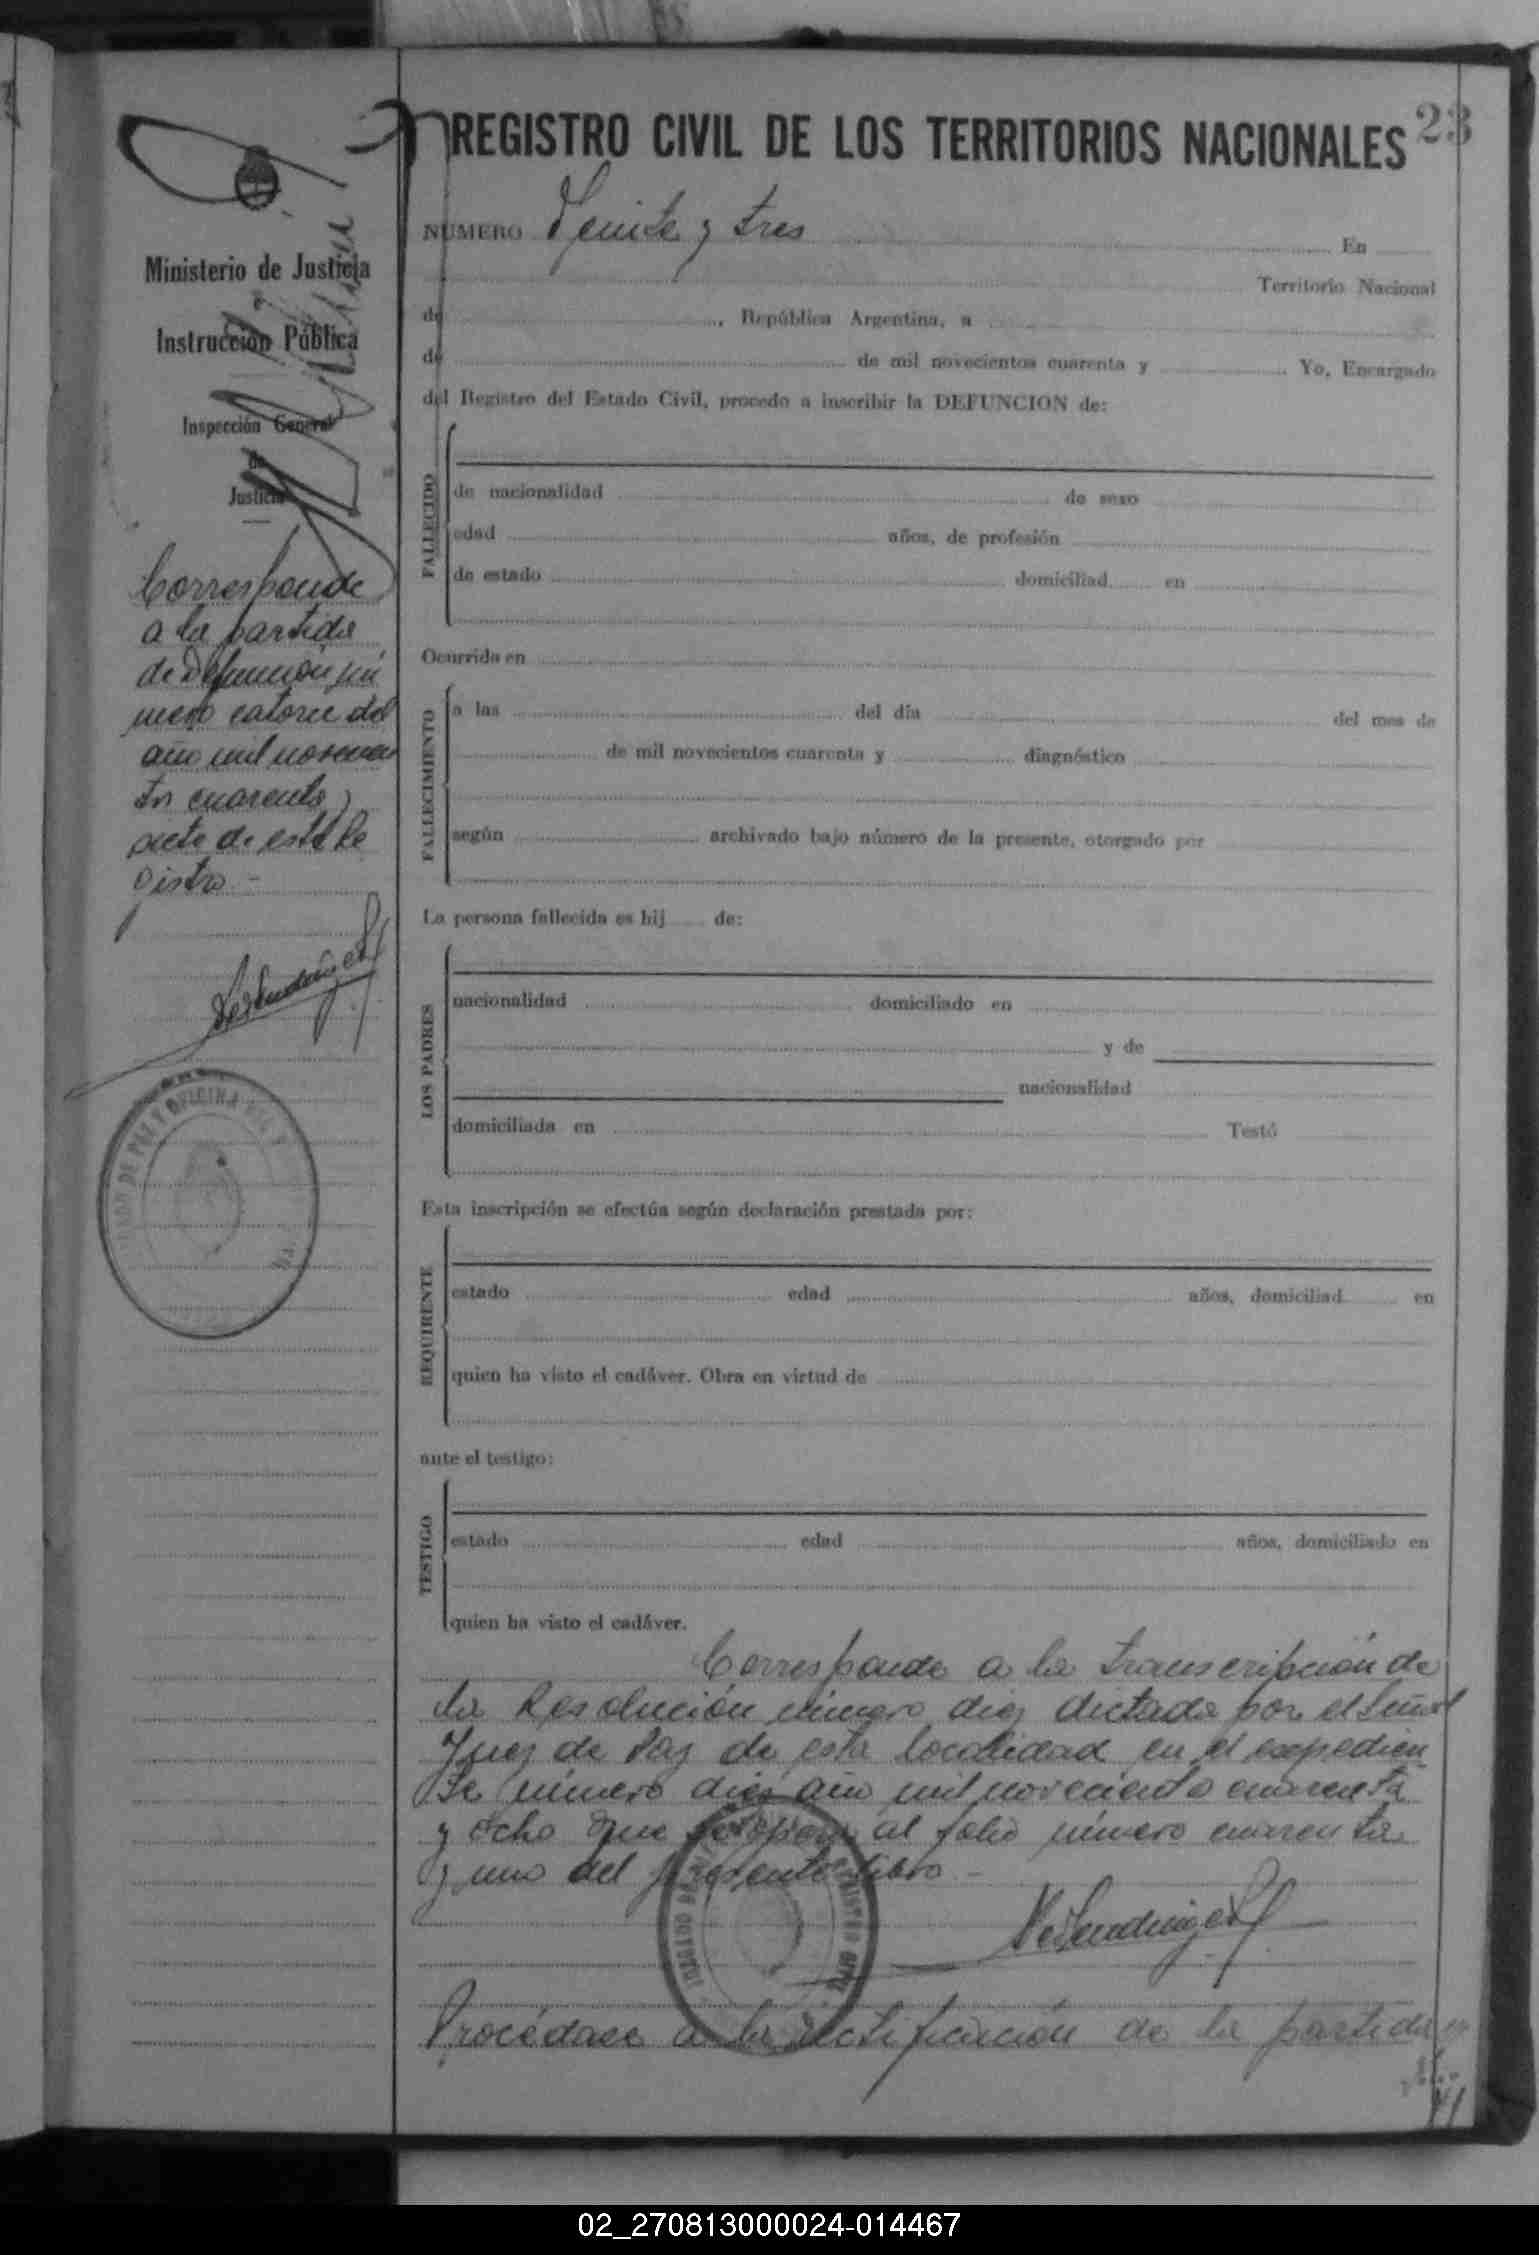 REGISTRO CIVIL DE LOS TERRITORIOS NACIONALES
23
NUMERO Veinte y tres En
Territorio Nacional
de , República Argentina, a
de de mil novecientos cuarenta y Yo, Encargado
del Registro del Estado Civil, procedo a inscribir la DEFUNCION de:
Ministerio de Justicia
e
Instrucción Pública
Inspección General
de
Justicia
Corresponde
a la partida
de Defunción nú
mero catorce del
año mil novecien
tos cuarenta y
siete de este Re
gistro.-
FALLECIDO
de nacionalidad de sexo
edad años, de profesión
de estado domiciliad en
Ocurrida en
FALLECIMIENTO
a las del día del mes de
de mil novecientos cuarenta y diagnóstico
según archivado bajo número de la presente, otorgado por
La persona fallecida es hij de:
LOS PADRES
nacionalidad domiciliado en
y de
nacionalidad
domiciliada en Testó
Esta inscripción se efectúa según declaración prestada por:
REQUIRENTE
estado edad años, domiciliad en
quien ha visto el cadáver. Obra en virtud de
ante el testigo:
TESTIGO
estado edad años, domiciliado en
quien ha visto el cadáver.
Corresponde a la transcripción de
la Resolución número diez dictada por el Señor
Juez de Paz de esta localidad en el expedien
te número diez año mil novecientos cuarenta
y ocho que al folio número cuarenta
y uno del presente libro.-
Procédase a la rectificación de la partida
41
02_270813000024-014467